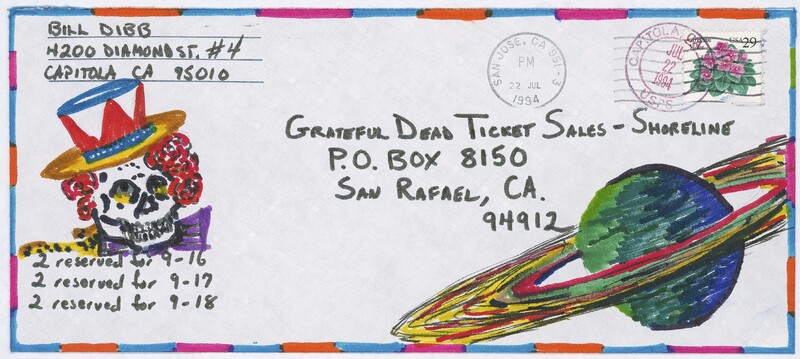 BILL DIBB
4200 DIAMOND ST. #4
CAPITOLA CA 95010
SAN JOSE, CA 951 - 3
PM
22 JUL
1994
CAPITOLA, CA
JUL
22
1994
USPS
USA 29
GRATEFUL DEAD TICKET SALES - SHORELINE
P.O. BOX 8150
SAN RAFAEL, CA.
94912
2 reserved for 9-16
2 reserved for 9-17
2 reserved for 9-18